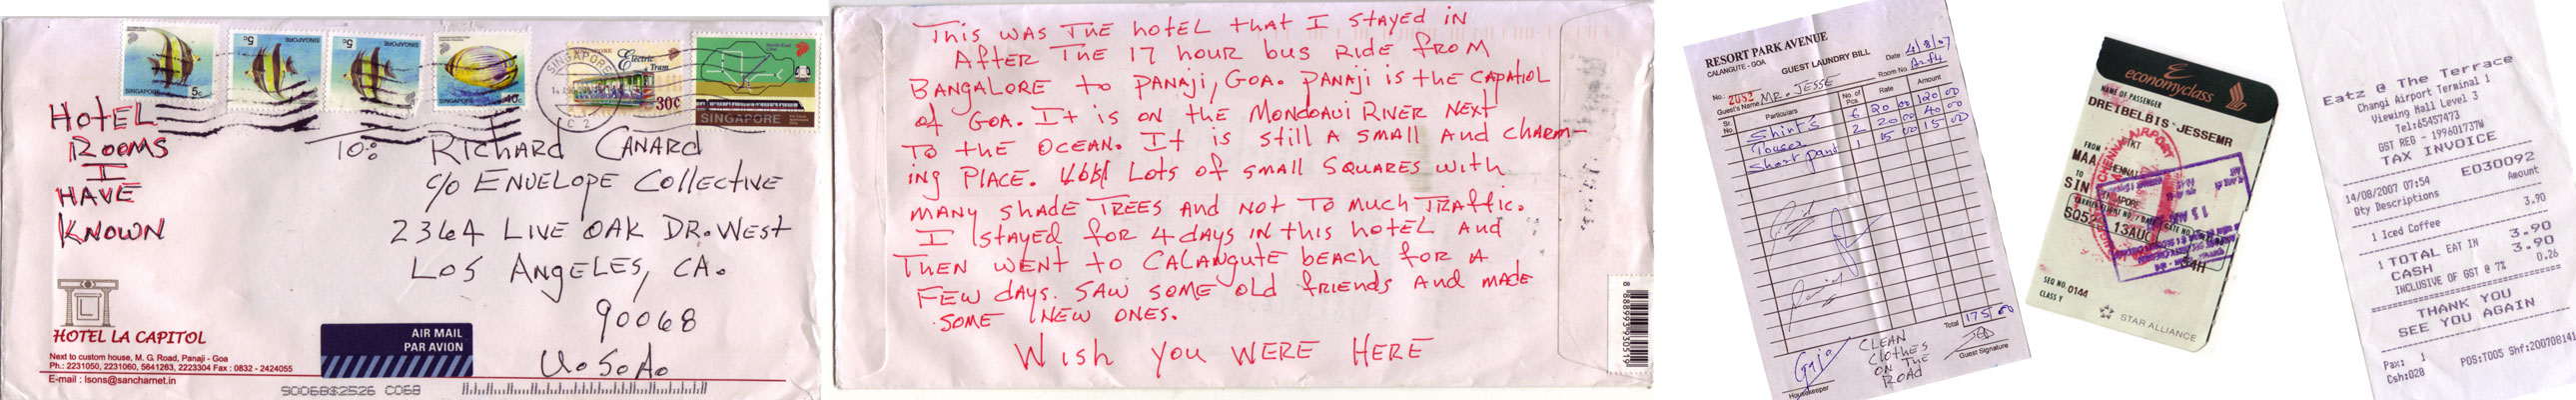 SINGAPORE
5c
5c
SINGAPORE
5c
SINGAPORE
SINGAPORE
40c
SINGAPORE
Electric
Tram
30c
North East
Line
SINGAPORE
HOTEL
ROOMS
I
HAVE
KNOWN
TO:
RICHARD CANARD
c/o ENVELOPE COLLECTIVE
2364 LIVE OAK DR. WEST
LOS ANGELES, CA.
90068
U.S.A.
HOTEL LA CAPITOL
Next to custom house, M. G. Road, Panaji - Goa
Ph.: 2231050, 2231060, 5641263, 2223304 Fax : 0832 - 2424055
E-mail : lsons@sancharnet.in
AIR MAIL
PAR AVION
90068$2526 C068
THIS WAS THE hotel that I stayed IN
AFTER THE 17 hour bus RIDE from
BANGALORE to PANAJI, GOA. PANAJI is the CAPATIOL
of GOA. It is on the MONDOAUI RIVER NEXT
TO the OCEAN. It is still A small AND CHARM-
ING PLACE. Lots of small SQUARES with
MANY shade TREES AND NOT TO Much TRAffic.
I stayed for 4 days IN this hotel AND
THEN WENT to CALANGUTE beach for A
FEW days. SAW some old friends AND MADE
SOME NEW ONES.
WISH YOU WERE HERE
8 888893 930519
RESORT PARK AVENUE
CALANGUTE - GOA
GUEST LAUNDRY BILL
Date 4/8/07
No.: 2082
Room No.
Guest's Name MR. JESSE
Sr. No. Particulars No. of Pcs. Rate Amount
Shirts 6 20 00 120 00
Touser 2 20 00 40 00
Short pant 1 15 00 15 00
Total 175 00
Housekeeper
CLEAN
Clothes
ON THE
ROAD
Guest Signature
economyclass
NAME OF PASSENGER
DREIBELBIS JESSEMR
FROM
MAA
TO
SIN
13AUG
SEQ NO. 0144
CLASS Y
STAR ALLIANCE
Eatz @ The Terrace
Changi Airport Terminal 1
Viewing Mall Level 3
Tel:65457473
GST REG - 199601737W
TAX INVOICE
E030092
14/08/2007 07:54
Qty Descriptions Amount
1 Iced Coffee 3.90
1 TOTAL EAT IN 3.90
CASH 3.90
INCLUSIVE OF GST @ 7% 0.26
THANK YOU
SEE YOU AGAIN
Pax: 1
Csh:028 POS:T005 Shf:200708141